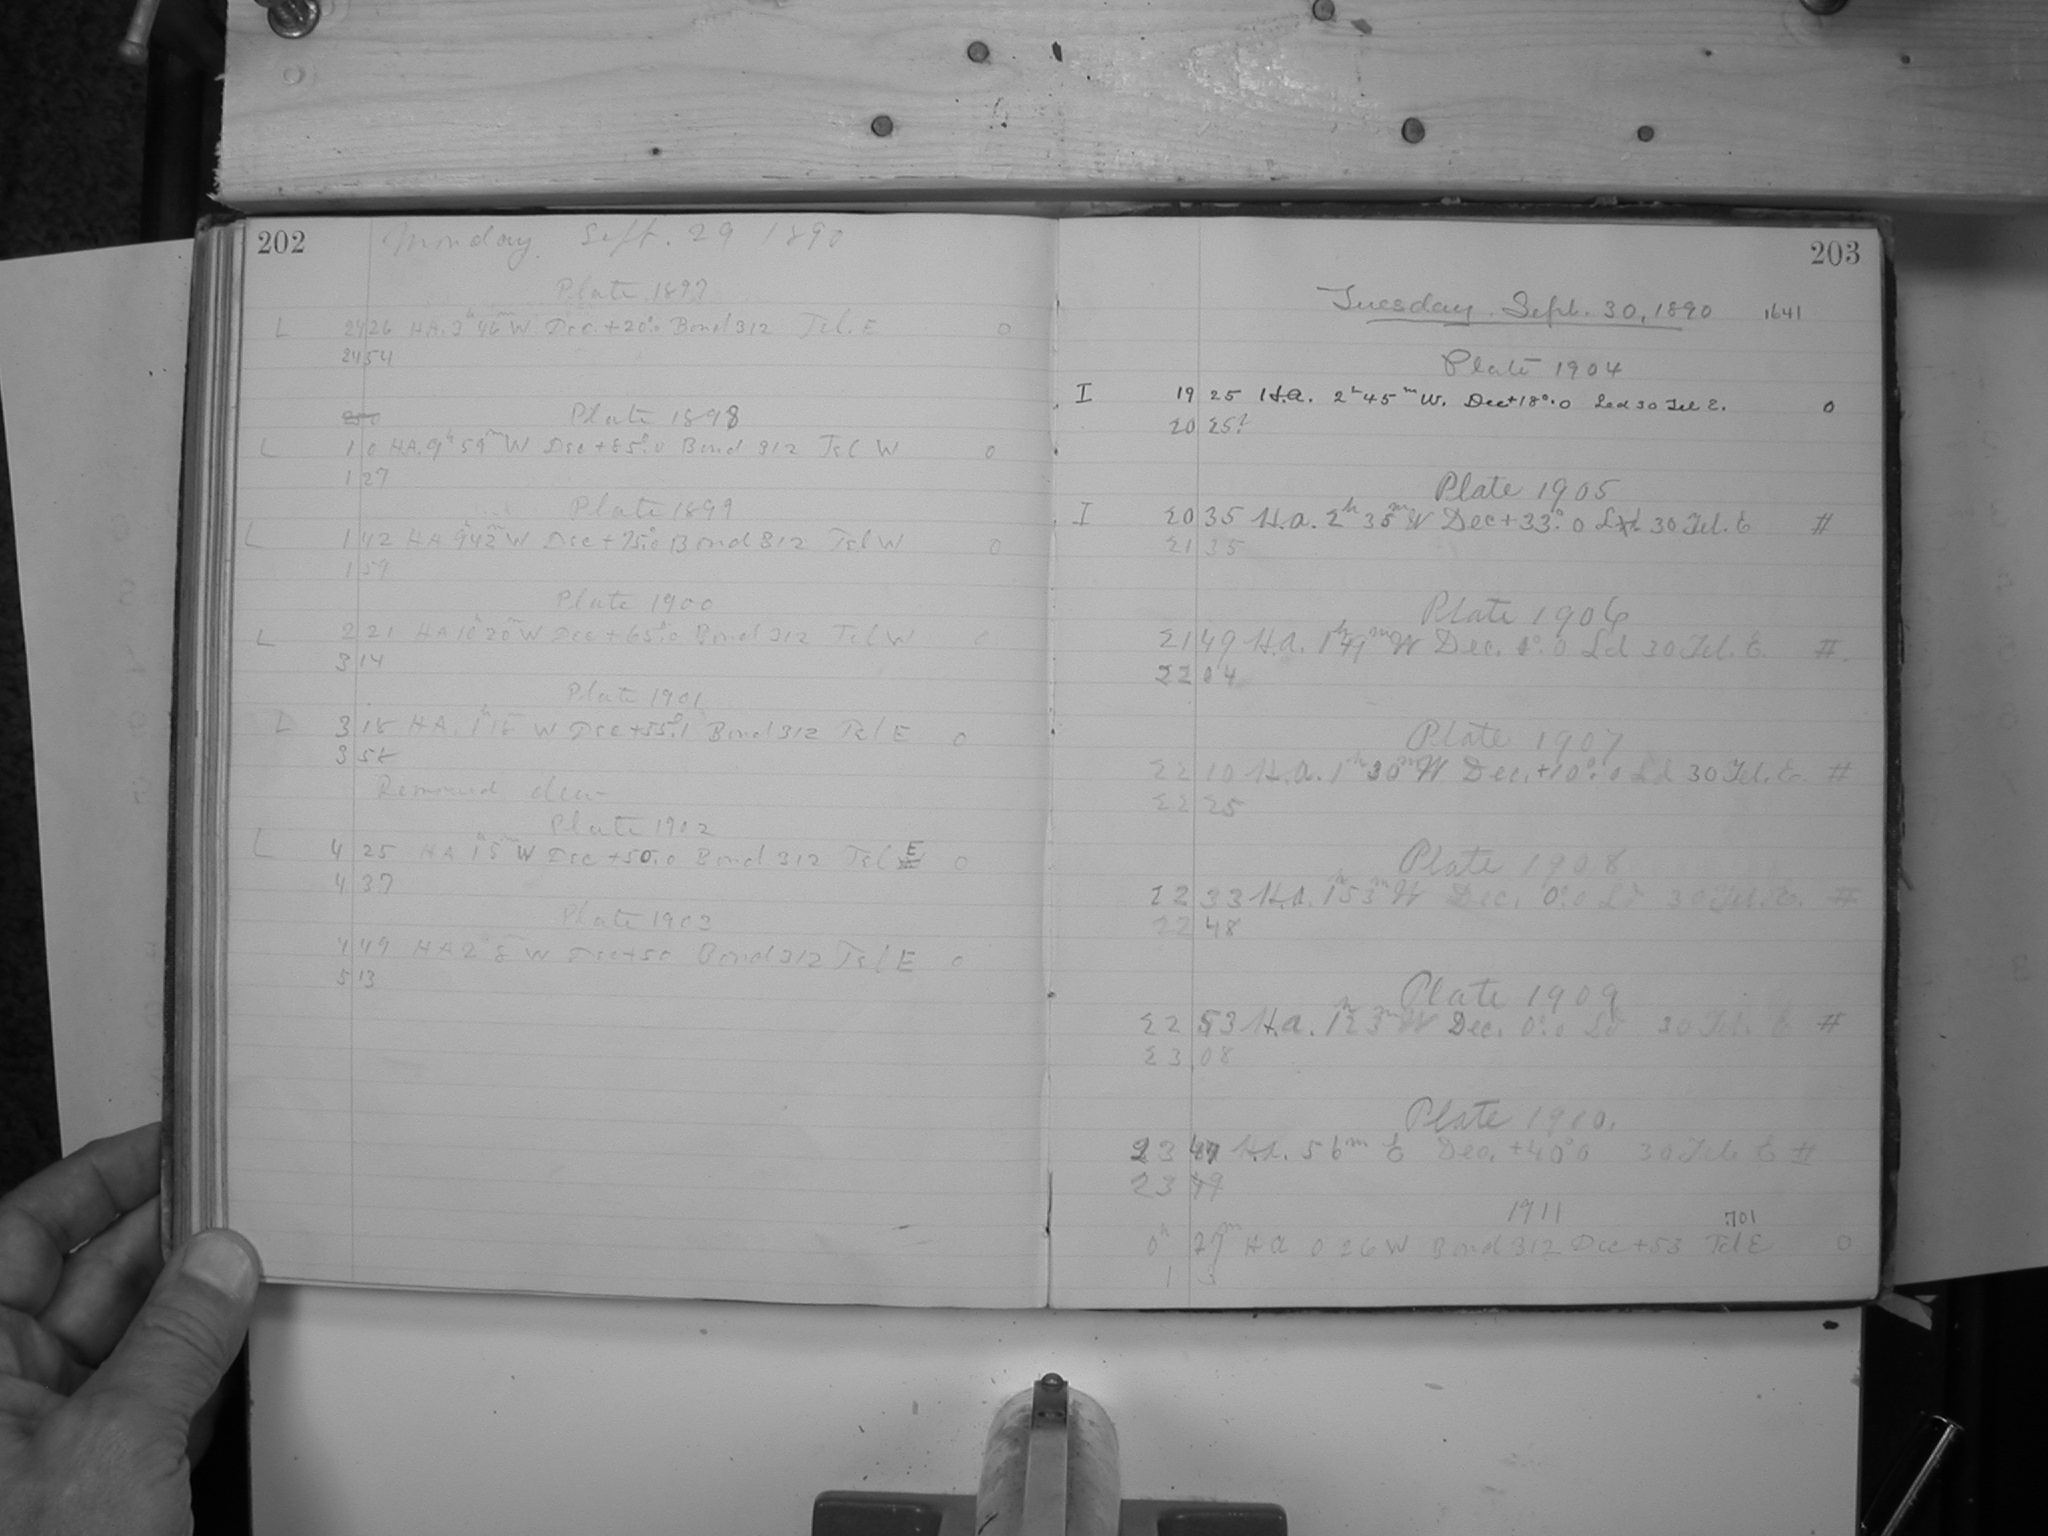 202
Monday Sept. 29 1890
Plate 1897
L 24 26 HA. 3h 46m W. Dec. +20°.0 Bond 312 Tel. E 0
24 54
Plate 1898
L 1 0 HA. 9h 59m W Dec +85°.0 Bond 312 Tel W 0
1 27
Plate 1899
L 1 42 HA 9h 42m W Dec +75°.0 Bond 312 Tel W 0
1 59
Plate 1900
L 2 21 HA 10h 20m W Dec +65°.0 Bond 312 Tel W 0
3 14
Plate 1901
L 3 18 HA. 1h 18 W Dec +55°.1 Bond 312 Tel E 0
3 58
Removed dew
Plate 1902
L 4 25 HA 1h 5m W Dec +50.0 Bond 312 Tel E 0
4 37
Plate 1903
4 49 HA 2h 8 W Dec +50 Bond 312 Tel E 0
5 13
203
Tuesday. Sept. 30, 1890 1641
Plate 1904
I 19 25 H.a. 2h 45m W. Dec +18°.0 Led 30 Tel E. 0
20 25?
Plate 1905
I 20 35 H.a. 2h 35m W Dec + 33°.0 30 Tel. E #
21 35
Plate 1906
21 49 H.a. 1h 49m W Dec. 0°.0 Ld 30 Tel. E. #.
22 04
Plate 1907
22 10 H.a. 1h 30m W Dec. +10°.0 Ld 30 Tel. E. #
22 25
Plate 1908
22 33 H.a. 1h 53m W Dec. 0°.0 Ld 30 Tel. E. #
22 48
Plate 1909
22 53 H.a. 1h 23m W Dec. 0°.0 Ld 30 Tel. E #
23 08
Plate 1910.
23 H.a. 56m E Dec. +40°0 30 Tel. E #
23
1911 701
0h 27m H a 0 26 W Bond 312 Dec +53 Tel E 0
1 3